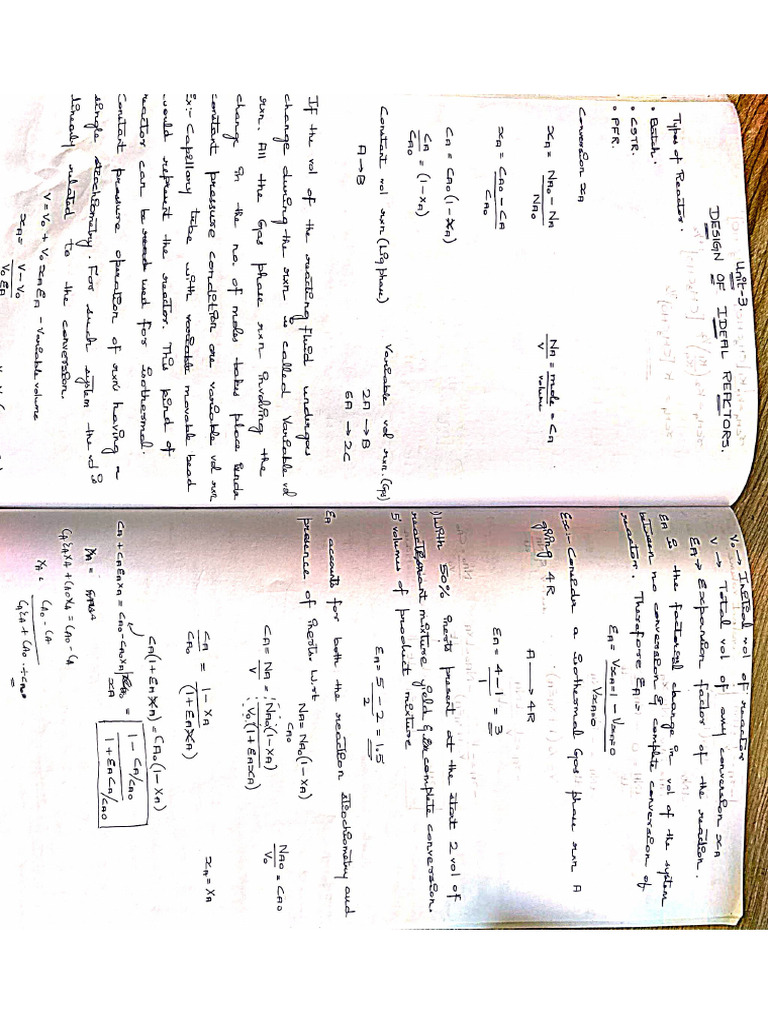 Unit-3
DESIGN OF IDEAL REACTORS.
Types of Reactor.
• Batch.
• CSTR.
• PFR.
Conversion xA
xA = NA0 - NA / NA0
NA / V = moles / volume = CA
xA = CA0 - CA / CA0
CA = CA0 (1 - xA)
CA / CA0 = (1 - xA)
Constant vol rxn (Liq phase)
Variable vol rxn. (Gas)
A → B
2A → B
6A → 2C
If the vol of the reacting fluid undergoes
change during the rxn is called Variable vol
rxn. All the Gas phase rxn involving the
change in the no. of moles takes place under
constant pressure condition are variable vol rxn
Ex:- Capillary tube with variable movable bead
would represent the reactor. This kind of
reactor can be used for isothermal
constant pressure operation of rxn having a
single stoichiometry. For such system the vol is
linearly related to the conversion.
V = V0 + V0 xA EA - Variable volume
xA = V - V0 / V0 EA
V0 → Initial vol of reactor
V → Total vol of any conversion xA
EA → Expansion factor of the reaction.
EA is the factorial change in vol of the system
between no conversion & complete conversion of
reactor. Therefore EA =
EA = VxA=1 - VxA=0 / VxA=0
Ex:- Consider a isothermal Gas phase rxn A
giving 4R
A → 4R
EA = 4 - 1 / 1 = 3
1) With 50% inerts present at the start 2 vol of
mixture yield complete conversion.
5 volumes of product mixture
EA = 5 - 2 / 2 = 1.5
EA accounts for both the reaction stoichiometry and
presence of inerts. W.r.t
NA = NA0 (1 - XA)
CA0
CA = NA / V = NA0 (1 - XA) / V0 (1 + EA XA)
NA0 / V0 = CA0
CA / CA0 = 1 - XA / (1 + EA XA)
xA = XA
CA (1 + EA XA) = CA0 (1 - XA)
CA + CA EA XA = CA0 - CA0 XA
XA = 1 - CA/CA0 / 1 + EA CA/CA0
CA EA XA + CA0 XA = CA0 - CA
XA =